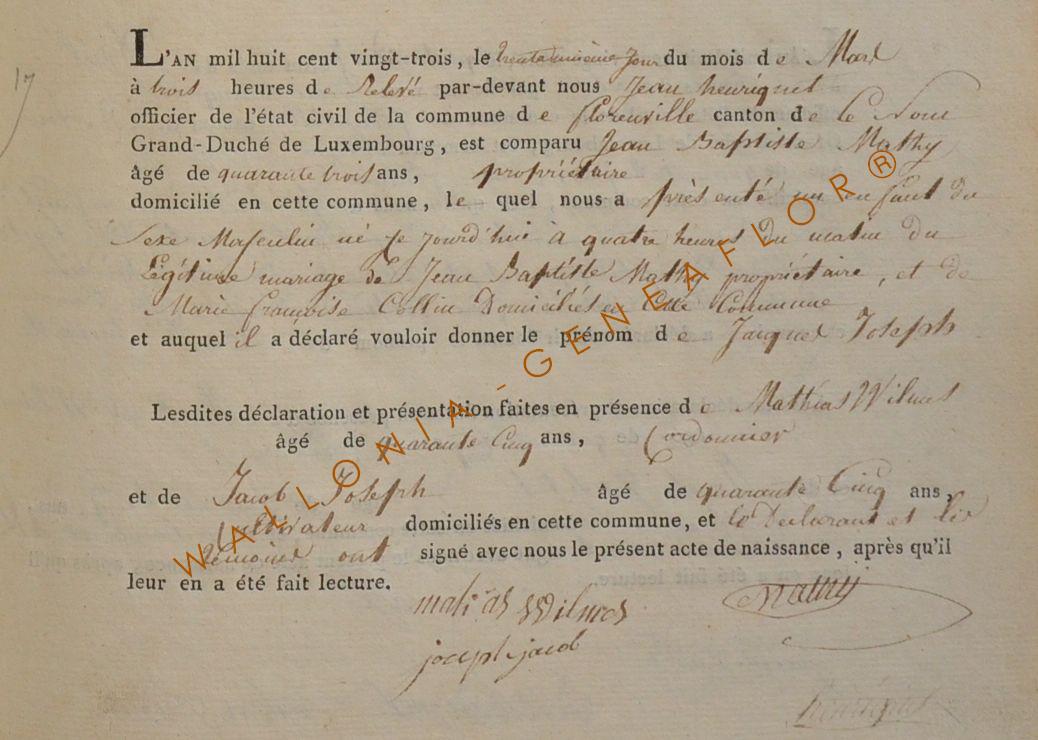 17
L'AN mil huit cent vingt-trois, le trente unième jour du mois de Mars
à trois heures de Relevé par-devant nous Jean henriquet
officier de l'état civil de la commune de florenville canton de Ce Nom
Grand-Duché de Luxembourg, est comparu Jean Baptiste Mathy
âgé de quarante trois ans, propriétaire
domicilié en cette commune, le quel nous a présenté un enfant du
Sexe Masculin né Ce Jourd'hui à quatre heures du matin du
Légitime mariage de Jean Baptiste Mathy propriétaire, et de
Marie françoise Collin Domiciliés en Cette Commune
et auquel il a déclaré vouloir donner le prénom de Jacques Joseph
Lesdites déclaration et présentation faites en présence de Mathias Wilmes
âgé de quarante Cinq ans, Cordonnier
et de Jacob Joseph âgé de quarante Cinq ans,
Cultivateur domiciliés en cette commune, et le Declarant et les
témoins ont signé avec nous le présent acte de naissance, après qu'il
leur en a été fait lecture.
matias Wilmes
Mathy
joseph jacob
henriquet
WALLONIA-GENEAFLOR®